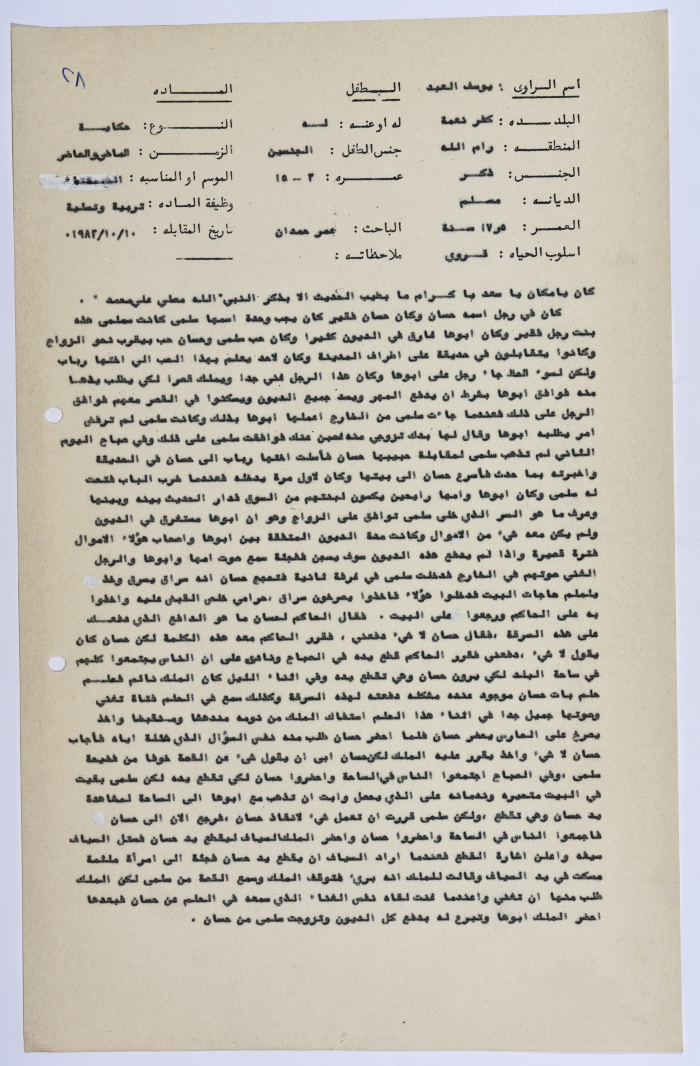 ٧٨
اسم الراوى : يوسف العبد الطفل المادة
البلده : كفر نعمة له او عنه : له النوع : حكاية
المنطقه : رام الله جنس الطفل : الجنسين الزمن : الماضي والحاضر
الجنس : ذكر عمره : ٣ -- ١٥ الموسم او المناسبه :
الديانه : مسلم وظيفة الماده : تربية وتسلية
العمر : ١٧ سنة الباحث : عمر حمدان تاريخ المقابله : ١٩٨٢/١٠/١٠
اسلوب الحياه : قروي ملاحظاته :
كان يامكان يا سعد يا كرام ما بطيب الحديث الا بذكر النبي " الله صلي علي محمد " .
كان في رجل اسمه حسان وكان حسان فقير كان يحب وحدة اسمها سلمى كانت سلمى هذه
بنت رجل فقير وكان ابوها غارق في الديون كثيرا وكان حب سلمى وحسان حب بيقرب نحو الزواج
وكانوا يتقابلون في حديقة على اطراف المدينة وكان لاحد يعلم بهذا الحب الي اختها رباب
ولكن لسوء الحظ جاء رجل على ابوها وكان هذا الرجل غني جدا ويملك قصرا لكي يطلب يدها
منه فوافق ابوها بشرط ان يدفع المهر ويسد جميع الديون ويسكنوا في القصر معهم فوافق
الرجل على ذلك فعندما جاءت سلمى من الخارج اعملها ابوها بذلك وكانت سلمى لم ترفض
امر يطلبه ابوها وقال لها بدك تزوجي منه غصبن عنك فوافقت سلمى على ذلك وفي صباح اليوم
الثاني لم تذهب سلمى لمقابلة حبيبها حسان فأسلت اختها رباب الى حسان في الحديقة
واخبرته بما حدث فأسرع حسان الى بيتها وكان لاول مرة يدخله فعندما ضرب الباب فتحت
له سلمى وكان ابوها وامها رايحين يكسون لبنتهم من السوق فدار الحديث بينه وبينها
وعرف ما هو السر الذي خلى سلمى توافق على الزواج وهو ان ابوها مستغرق في الديون
ولم يكن معه شيء من الاموال وكانت مدة الديون المتفقة بين ابوها واصحاب هؤلاء الاموال
فترة قصيرة واذا لم يدفع هذه الديون سوف يسجن ففجئة سمع صوت امها وابوها والرجل
الغني صوتهم في الخارج فدخلت سلمى في غرفة ثانية فتحجج حسان انه سراق يسرق وخذ
يلملم حاجات البيت فدخلوا هؤلاء فاخذوا يصرخون سراق ،حرامي خلص القبض عليه واخذوا
به على الحاكم ورجعوا على البيت . فقال الحاكم لحسان ما هو الدافع الذي دفعك
على هذه السرقة ،فقال حسان لا شيء دفعني ، فقرر الحاكم معه هذه الكلمة لكن حسان كان
يقول لا شيء ،دفعني فقرر الحاكم قطع يده في الصباح ونادى على ان الناس يجتمعوا كلهم
في ساحة البلد لكي يرون حسان وهي تقطع يده وفي اثناء الليل كان الملك نائم فحلم
حلم بات حسان موجود عنده مشكله دفعته لهذه السرقة وكذلك سمع في الحلم فتاة تغني
وصوتها جميل جدا في اثناء هذا الحلم استفاك الملك من نومه مندهشا ومستغبضا واخذ
يصرخ على الحارس يحضر حسان فلما احضر حسان طلب منه نفس السؤال الذي سئلة اياه فأجاب
حسان لا شيء واخذ يقرر عليه الملك لكن حسان ابى ان يقول شيء عن القصة خوفا من فضيحة
سلمى ،وفي الصباح اجتمعوا الناس في الساحة واحضروا حسان لكي تقطع يده لكن سلمى بقيت
في البيت متحيره وندمانه على الذي يحصل وابت ان تذهب مع ابوها الى الساحة لمشاهدة
يد حسان وهي تقطع ،ولكن سلمى قررت ان تعمل شيء لانقاذ حسان ،فرجع الان الى حسان
فاجمعوا الناس في الساحة واحضروا حسان واحضر الملك السياف ليقطع يد حسان فستل السياف
سيفه واعلن اشارة القطع فعندما اراد السياف ان يقطع يد حسان فجئة الى امرأة ملثمة
مسكت في يد السياف وقالت للملك انه بريء فتوقف الملك وسمع القصة من سلمى لكن الملك
طلب منها ان تغني واعندما غنت لقاه نفس الغناء الذي سمعه في الحلم عن حسان فبعدها
احضر الملك ابوها وتبرع له بدفع كل الديون وتزوجت سلمى من حسان .